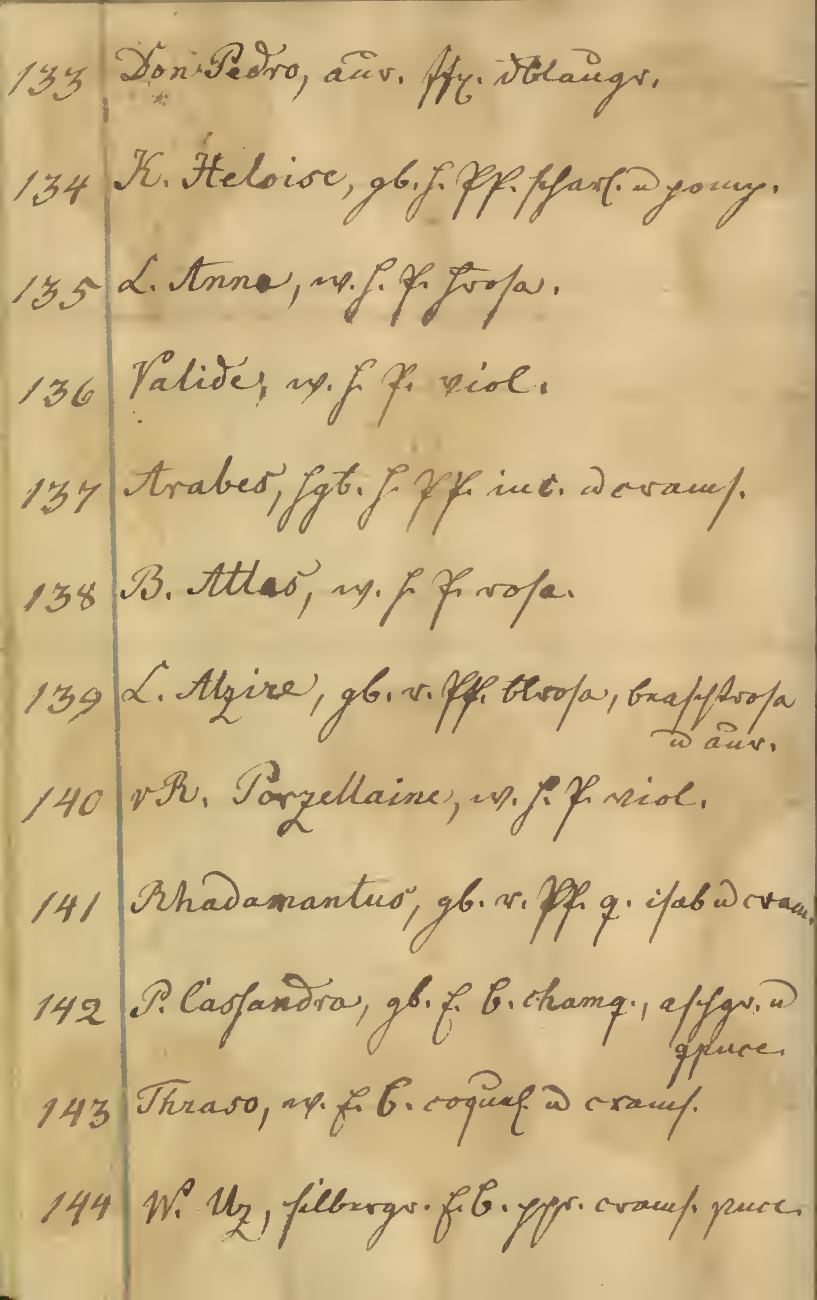 133 Don Pedro, aur. ffz. dblaugr.
134 K. Heloise, gb. h. Pf. scharl. u pomp.
135 L. Anna, w. h. P. hrosa.
136 Valide, w. h. P. viol.
137 Arabes, hgb. h. Pf. inc. u crams.
138 B. Atlas, w. h. P. rosa.
139 L. Alzire, gb. r. Pf. blrosa, beaschrosa
u aur.
140 vR. Porzellaine, w. h. P. viol.
141 Rhadamantus, gb. r. Pf. q. isab u cram.
142 P. Cassandra, gb. f. b. chamq., aschgr. u
qpuce.
143 Thraso, w. f. b. coquel u crams.
144 W. Uz, silbergr. f. b. ppr. crams. puce.